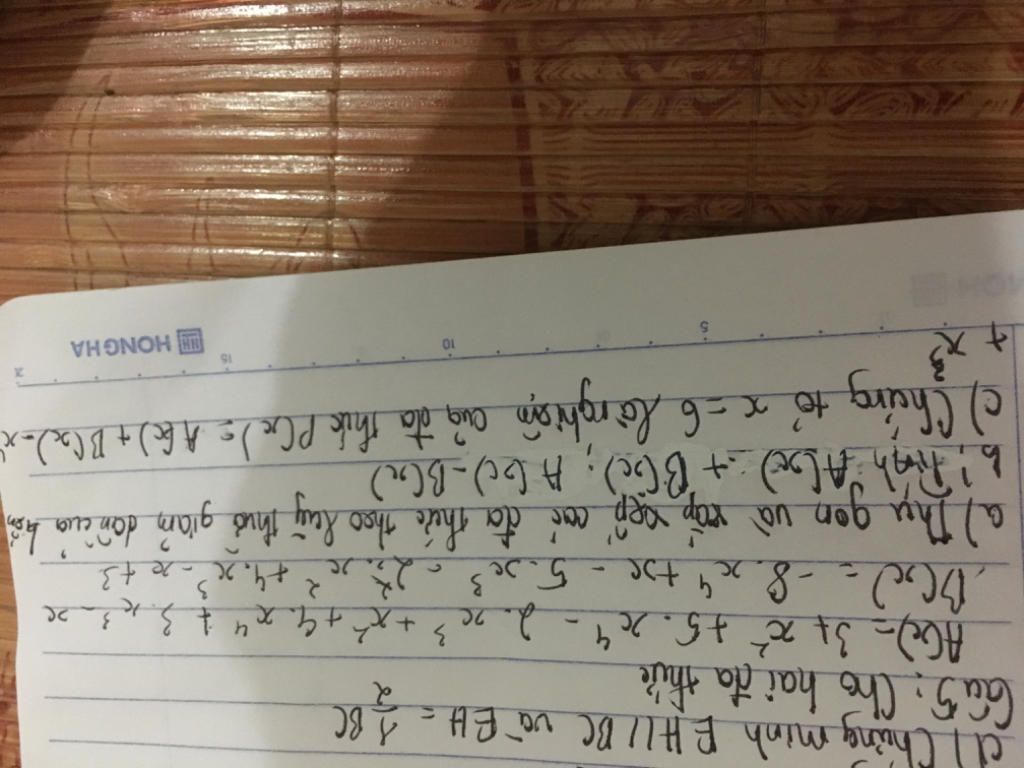 d) Chứng minh EH // BC và EH = 1/2 BC
Câu 5: Cho hai đa thức
A(x) = 3 + x² + 5.x⁴ - 2.x³ + x² + 4.x⁴ + 3.x³ - x
B(x) = -8.x⁴ + x - 5.x³ - 2.x² + 4.x³ - x + 3
a) Thu gọn và sắp xếp các đa thức theo luỹ thừa giảm dần của biến
b) Tính A(x) + B(x); A(x) - B(x)
c) Chứng tỏ x = 6 là nghiệm của đa thức P(x) = A(x) + B(x) - x⁴
+ x³
HONG HA
5
10
15